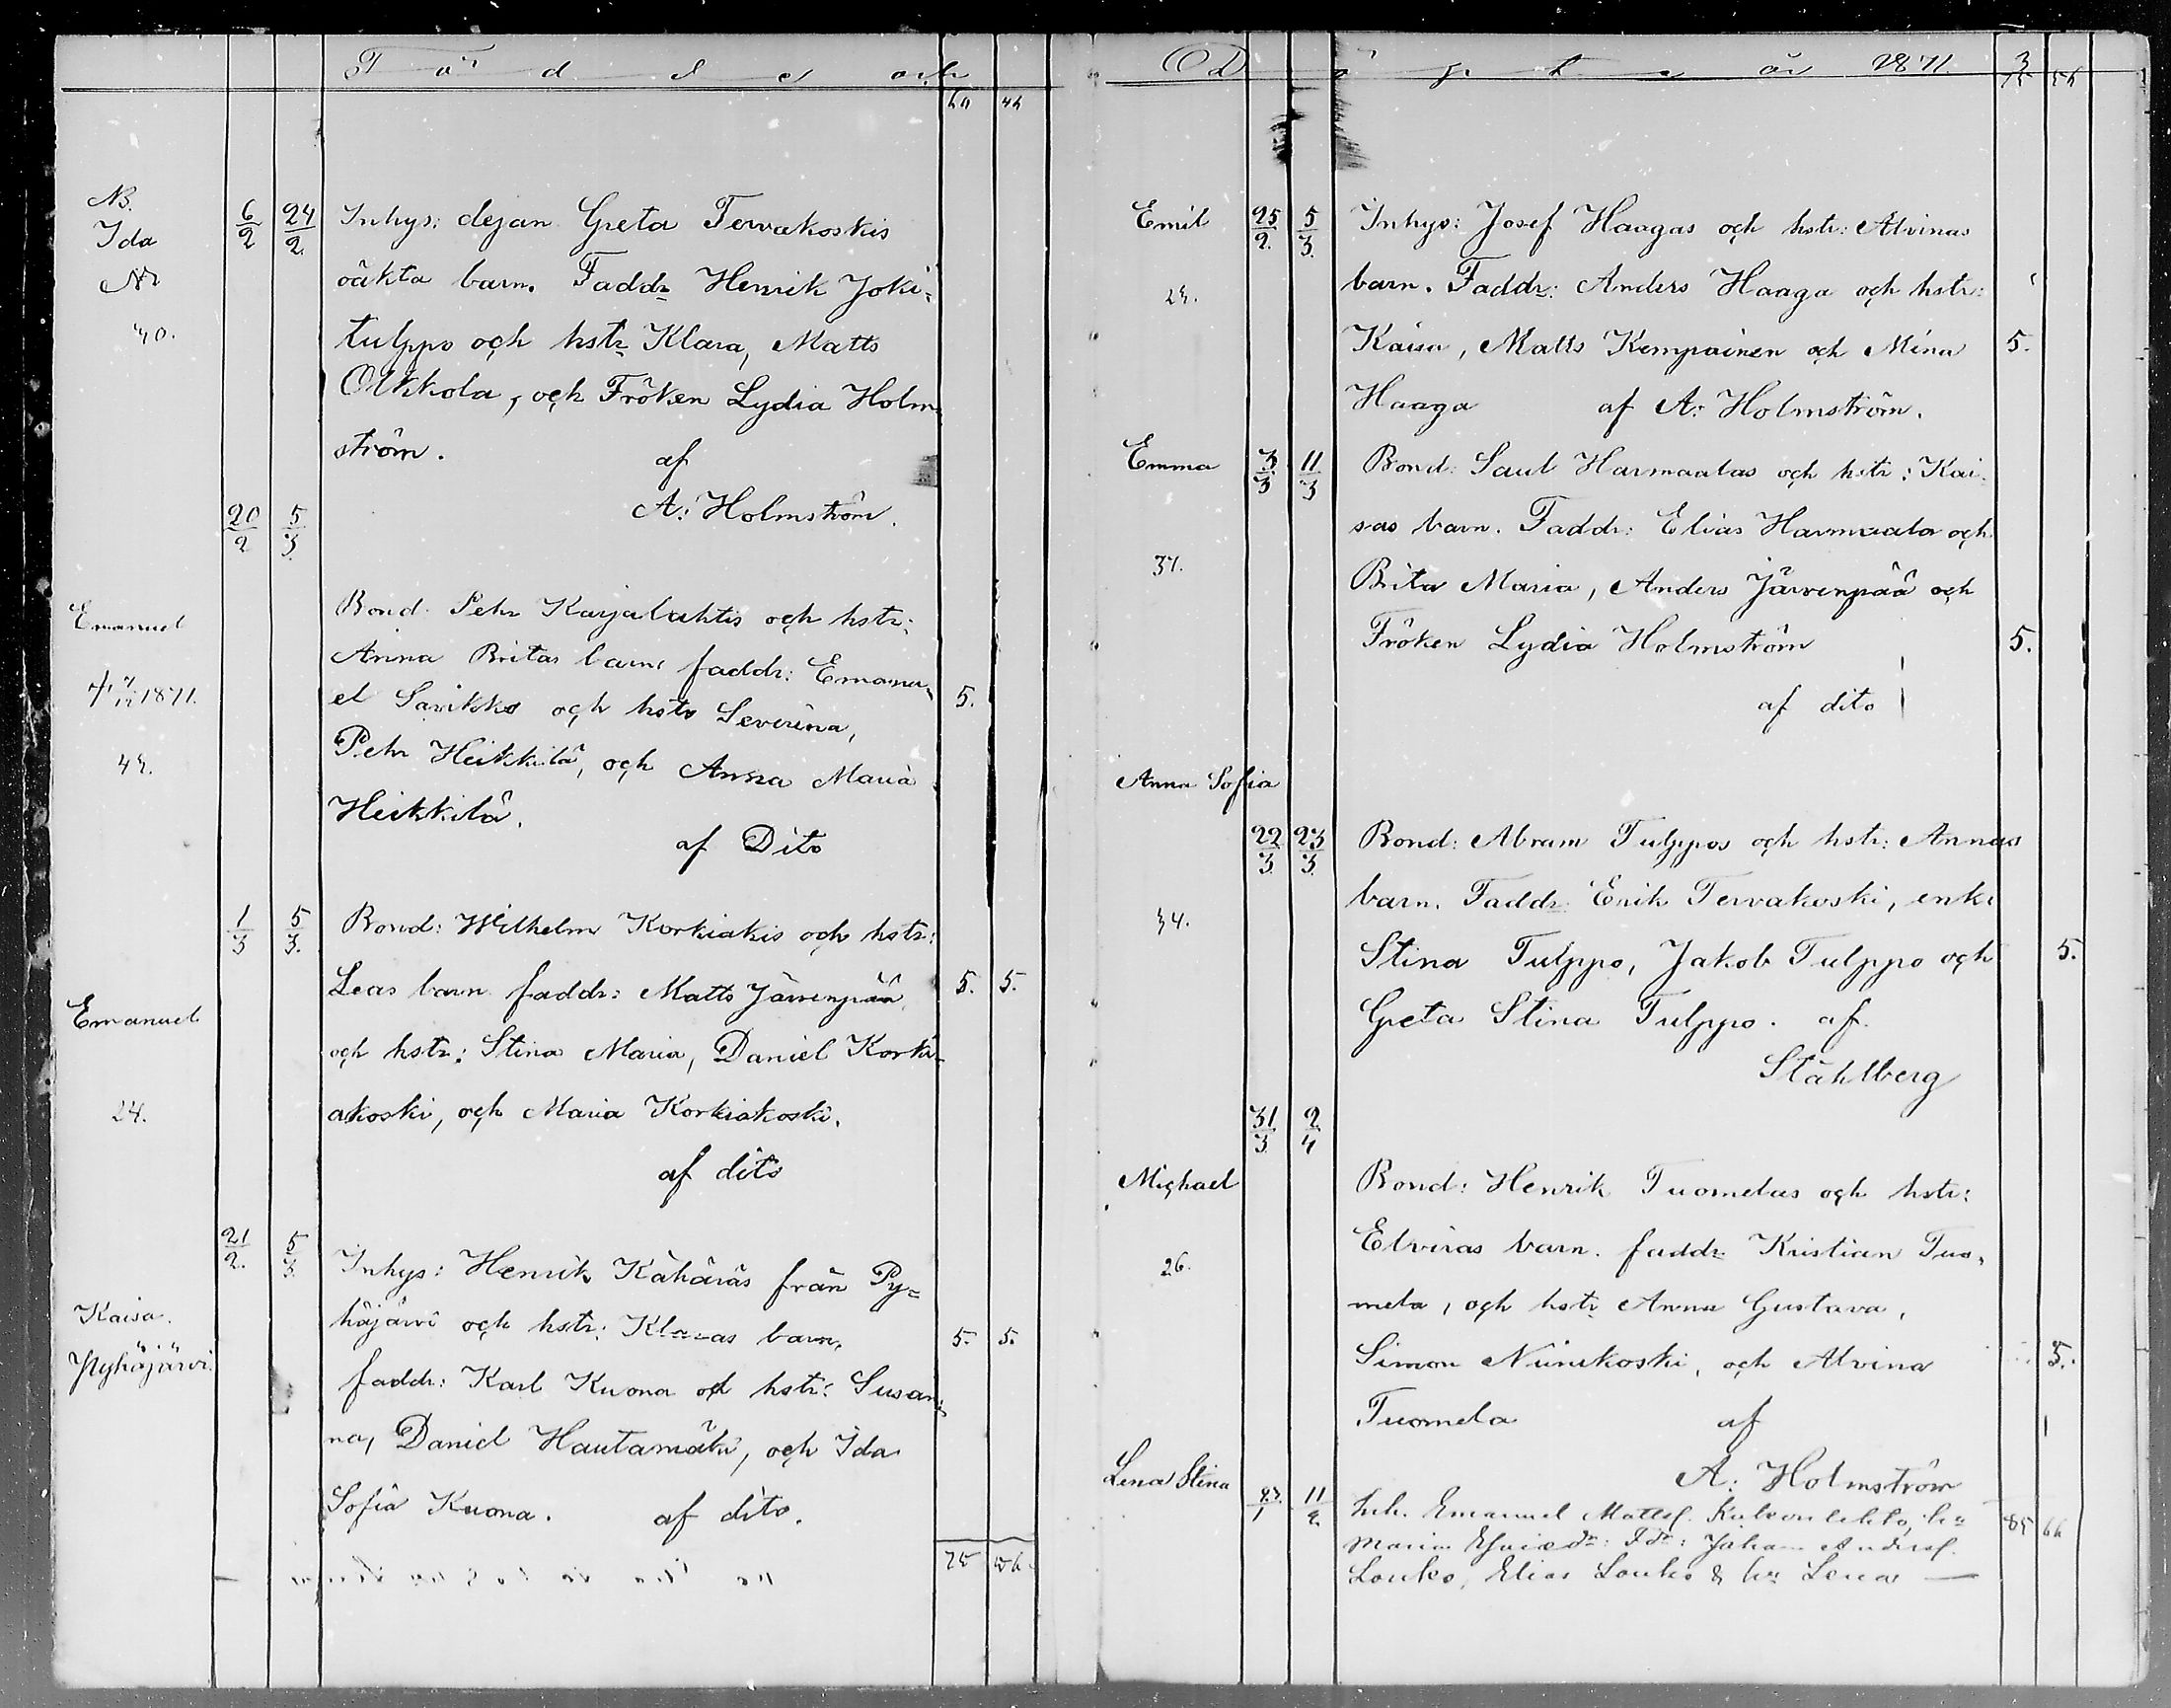 Födde och
60 46
NB.
Ida
40.
6/2 24/2.
Inhys: dejan Greta Tervakoskis
oäkta barn. Faddr Henrik Joki-
tulppo och hstr Klara, Matts
Olkkola, och Fröken Lydia Holm-
ström. af
A: Holmström.
20/2 5/3
Emanuel
1871.
42.
Bond: Pehr Karjalahtis och hstr:
Anna Britas barn faddr: Emanu-
el Sarikko och hstr Severina,
5.
Pehr Heikkilä, och Anna Maria
Heikkilä.
af Dito
1/3 5/3.
Emanuel
24.
Bond: Wilhelm Korkiakis och hstr:
Leas barn faddr: Matts Järvenpää
5. 5.
och hstr: Stina Maria, Daniel Korki-
akoski, och Maria Korkiakoski.
af dito
21/2. 5/3.
Kaisa.
Pyhäjärvi.
Inhys: Henrik Kähäräs från Py-
häjärvi och hstr: Klaras barn,
5. 5.
faddr: Karl Kuona och hstr: Susan-
na, Daniel Hautamäki, och Ida
Sofia Kuona. af dito.
75 56
Döpte år 1871. 3
75 56
Emil
24.
25/2. 5/3.
Inhys: Josef Haagas och hstr: Alvinas
barn. Faddr: Anders Haaga och hstr:
Kaisa, Matts Kempainen och Mina
5.
Haaga af A: Holmström.
Emma
37.
3/3 11/3
Bond: Saul Harmaalas och hstr: Kai-
sas barn. Faddr: Elias Harmaala och
Brita Maria, Anders Järvenpää och
Fröken Lydia Holmström
5.
af dito
Anna Sofia
34.
22/3. 23/3.
Bond: Abram Tulppos och hstr: Annas
barn. Faddr: Erik Tervakoski, enk:
Stina Tulppo, Jakob Tulppo och
5.
Greta Stina Tulppo. af.
Ståhlberg
31/3 2/4
Michael
26.
Bond: Henrik Tuomelas och hstr:
Elviras barn. faddr: Kristian Tuo-
mela, och hstr Anna Gustava,
Simon Niinikoski, och Alvina
5.
Tuomela af
A: Holmström
Lena Stina
11/2
Inh. Emanuel Mattsf.
Maria
85 66
Louko, Elias Louko & hu Lena —